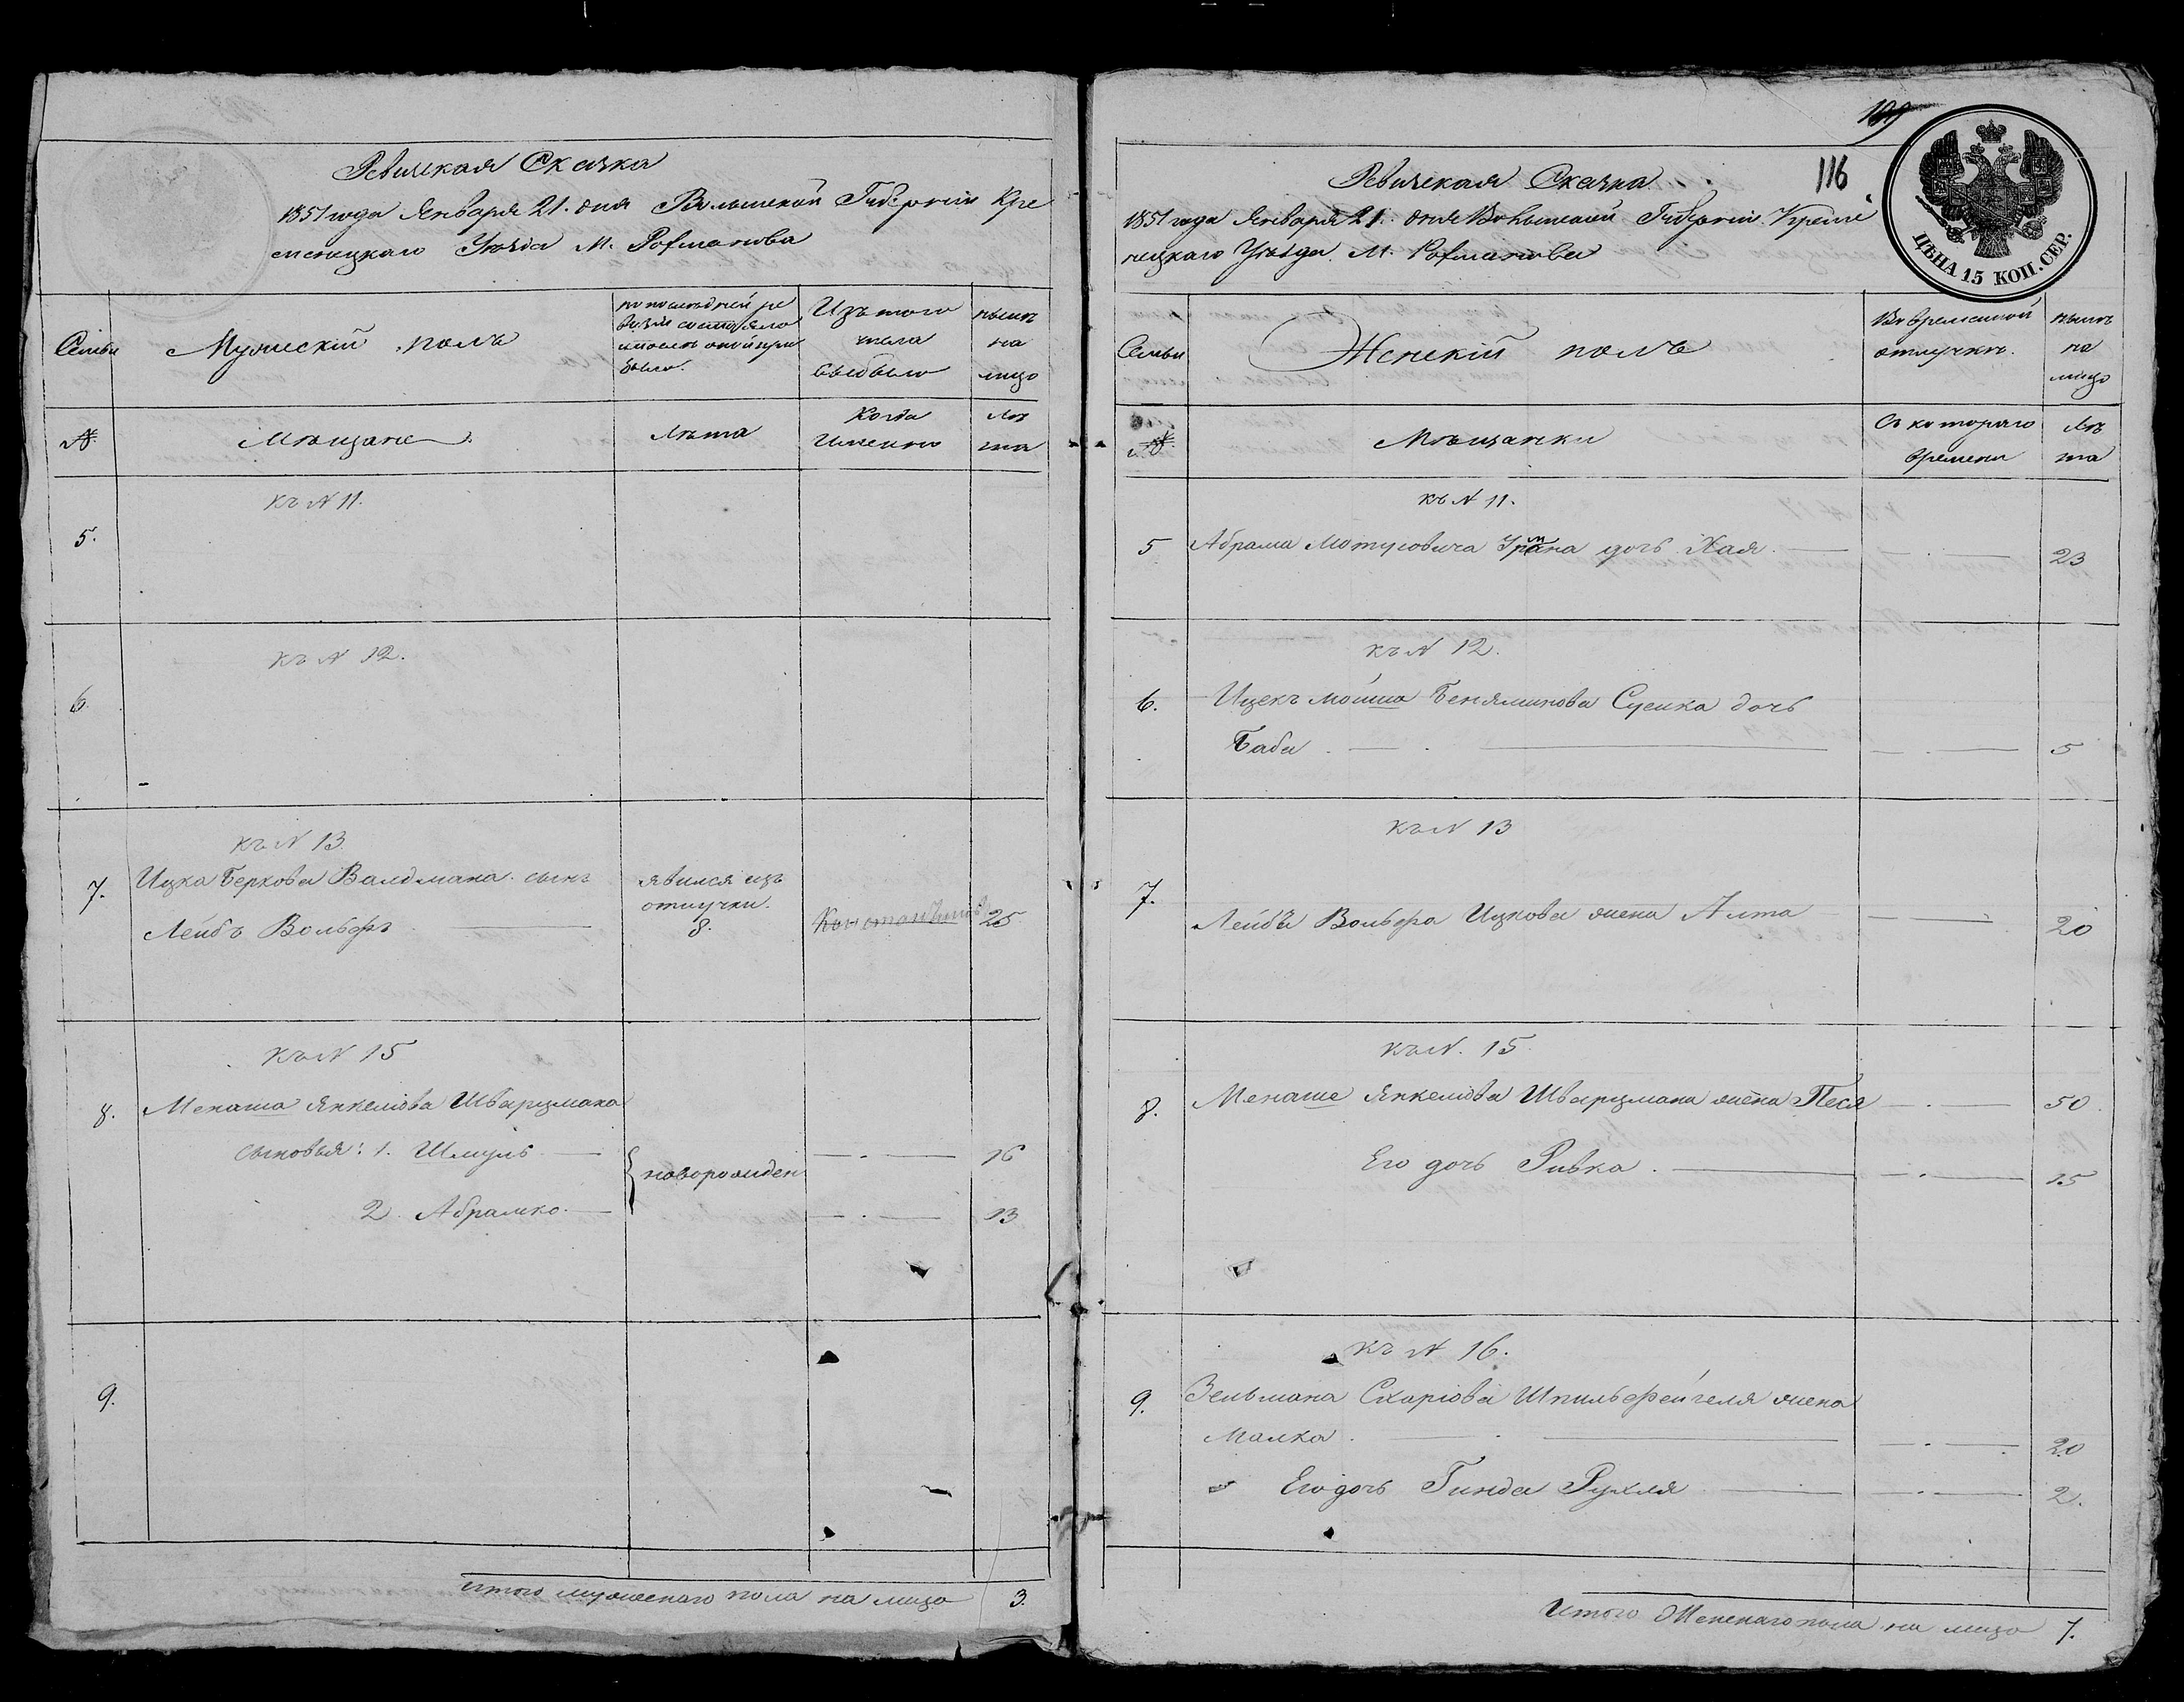 Ревижская Сказка
1851 года Января 21. дня Волынской Губернии Кре
менецкаго Уезда М. Рохманова
Семьи
Мужескій полъ
по последней ре
визіи состояло
и после оной при
было.
Изъ того
числа
выбыло
ныне
на
лицо
№
Мѣщане
Лѣта
Когда
Именно
Лѣ
та
къ № 11.
5.
къ № 12.
6.
къ № 13.
7.
Ицка Беркова Валдмана сынъ
Лейбъ Вольфъ
явился изъ
отлучки.
8.
25
къ № 15
8.
Менаша Янкеліова Шварцмана
сыновья: 1. Шмуль
новорожден
16
2. Абрамко
13
9.
Итого мужескаго пола на лицо 3.
109
116
ЦѢНА 15 КОП. СЕР.
Ревижская Сказка
1851 года Января 21. дня Волынской Губерніи Креме
нецкаго Уѣзда М. Рохманова
Семьи
Женскій полъ
Во временной
отлучкѣ.
ныне
на
лицо
№
Мѣщанки
Съ котораго
времени
Лѣ
та
къ № 11.
5 Абрама дочь Хая 23
къ № 12.
6. Ицекъ Мойша Беняминова Сусика дочь
Баба 5
къ № 13
7.
Лейба Вольфа Ицкова жена Алта 20
къ №. 15
8. Менаше Янкеліова Шварцмана жена Песя 50
Его дочь Ривка 15
къ № 16.
9. Зельмана Схаріова Шпильфейгеля жена
Малка 20
Его дочь Гинда Рухля 2.
Итого Женскаго пола на лицо 7.